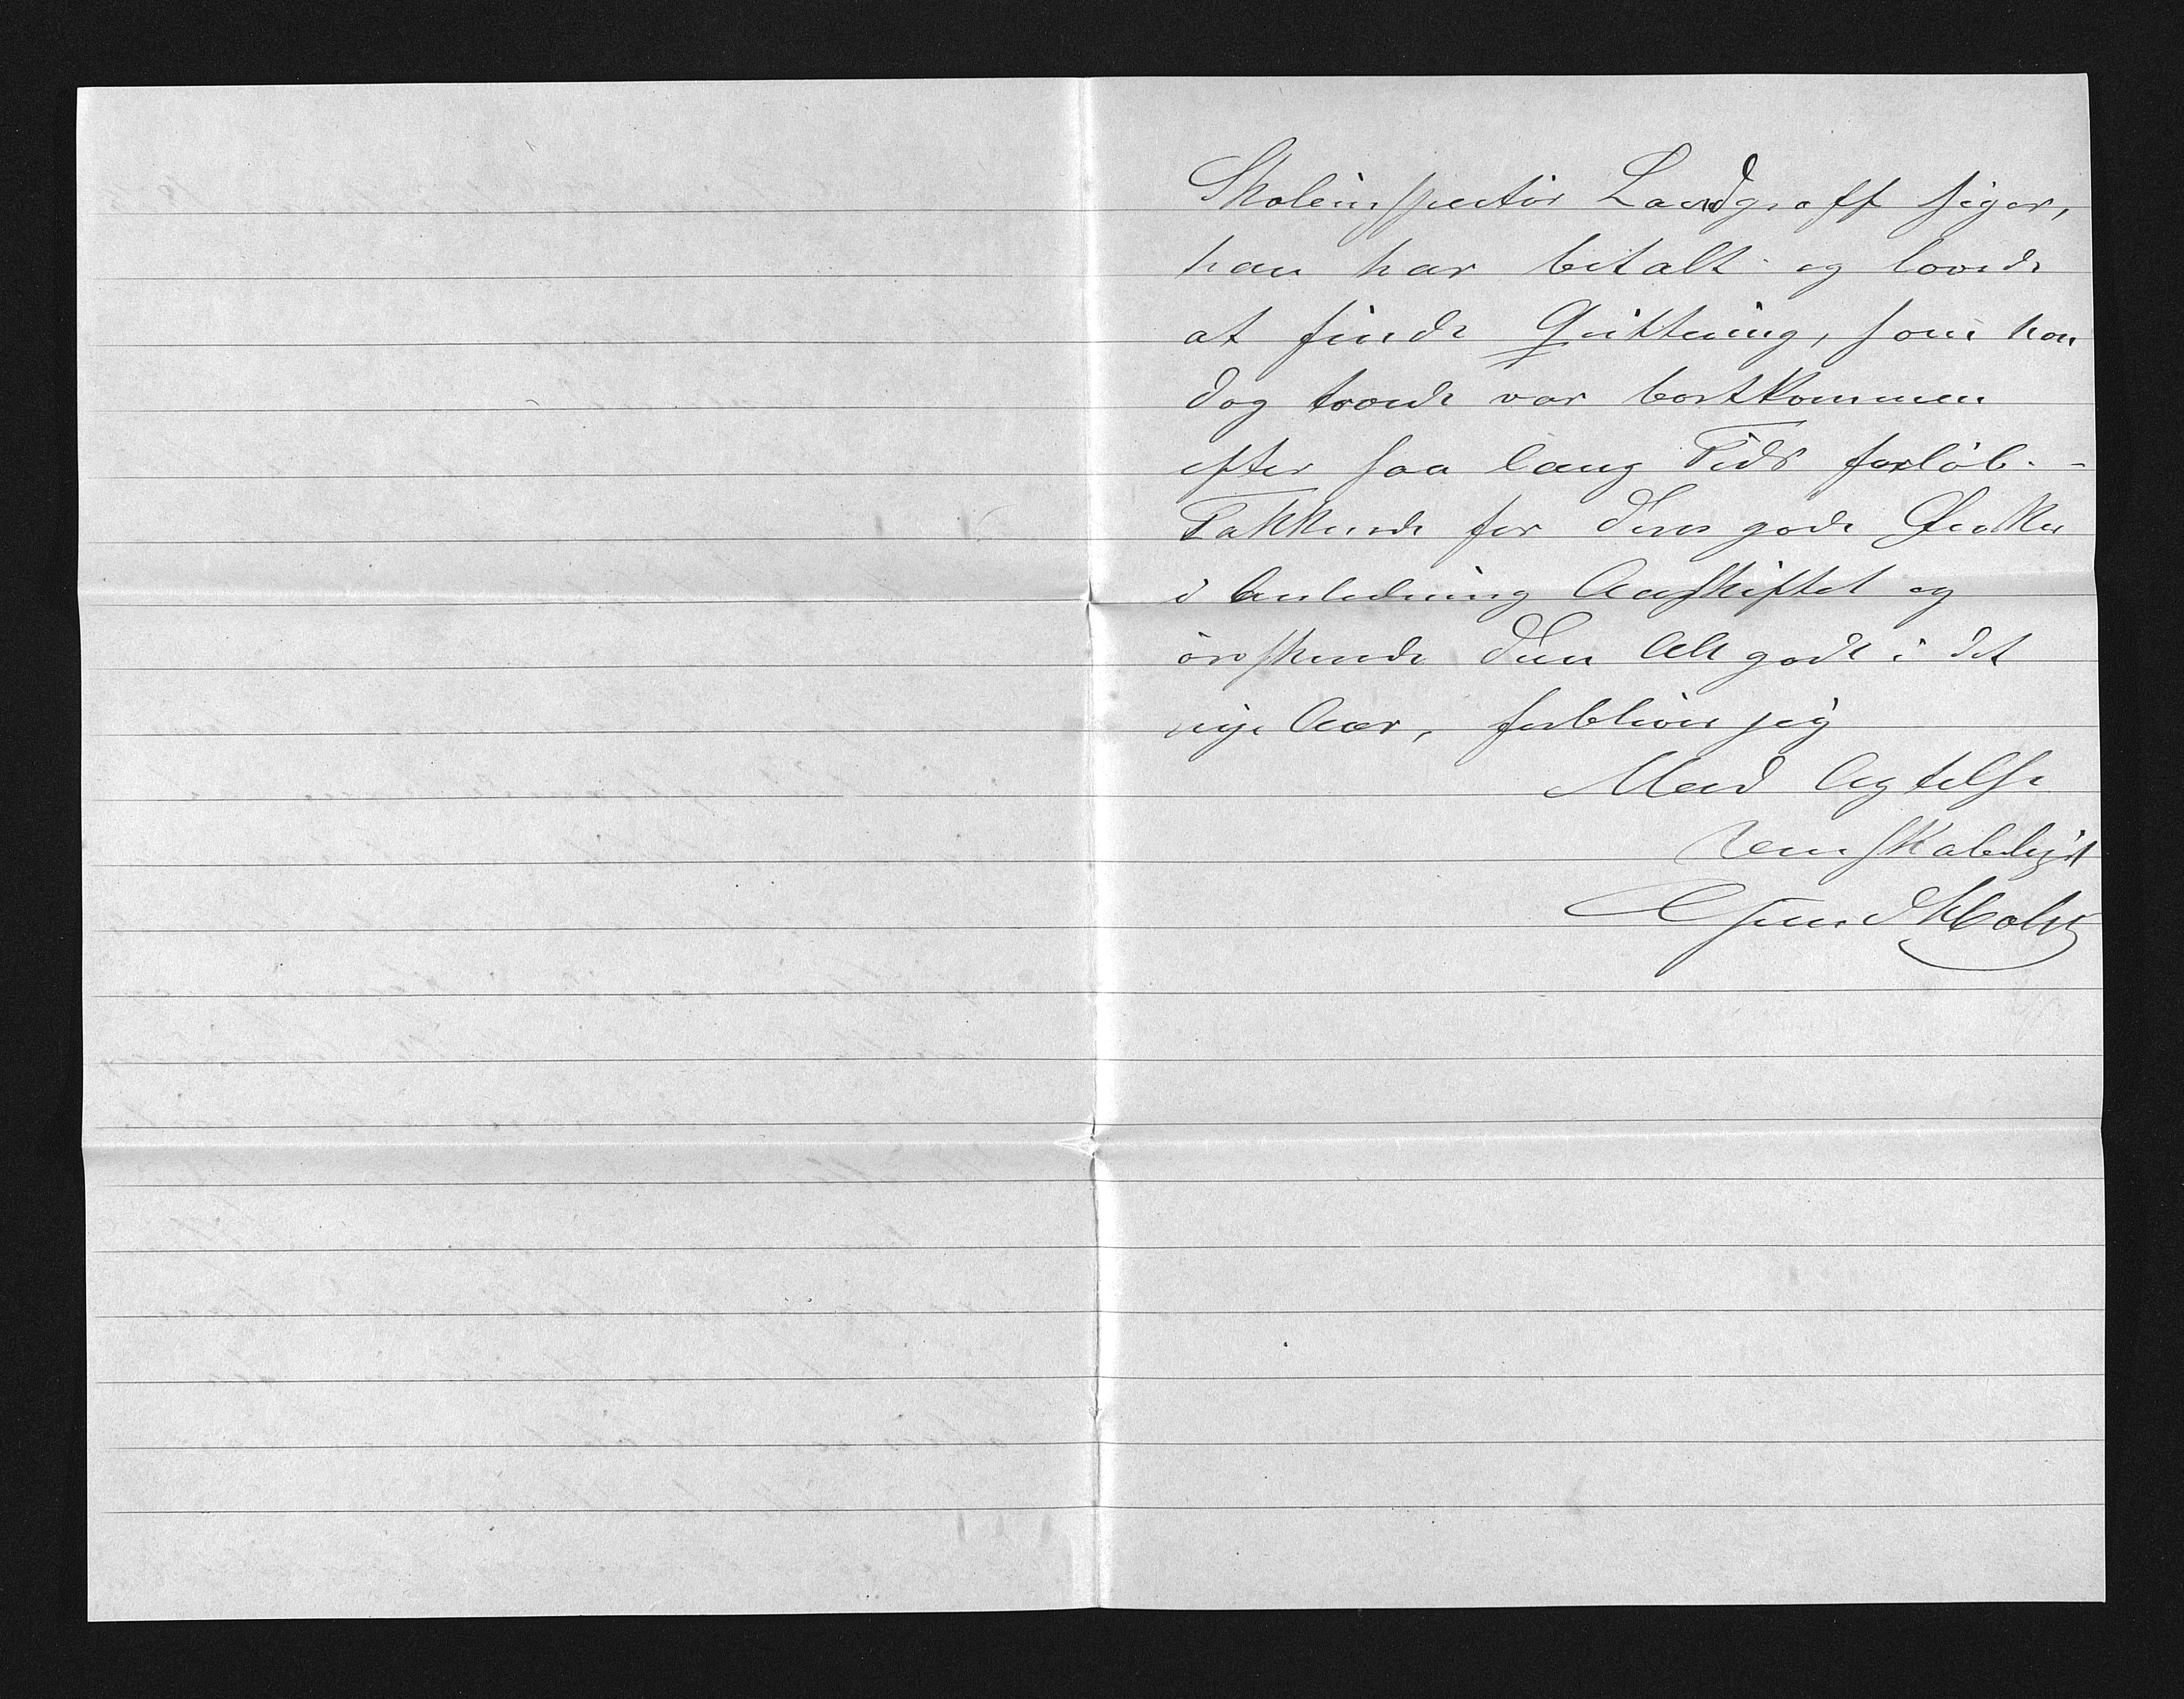 Skoleinspectør Landgraff siger,
han har betalt og lovede
at finde Qvittering, som han
dog troede var bortkommen
efter saa lang Tids forløb. -
Takkende for Deres gode Ønsker
i Anledning Aarskiftet og
ønskende Dem Alt godt i det
nye Aar, forbliver jeg
Med Agtelse
Venskabeligst